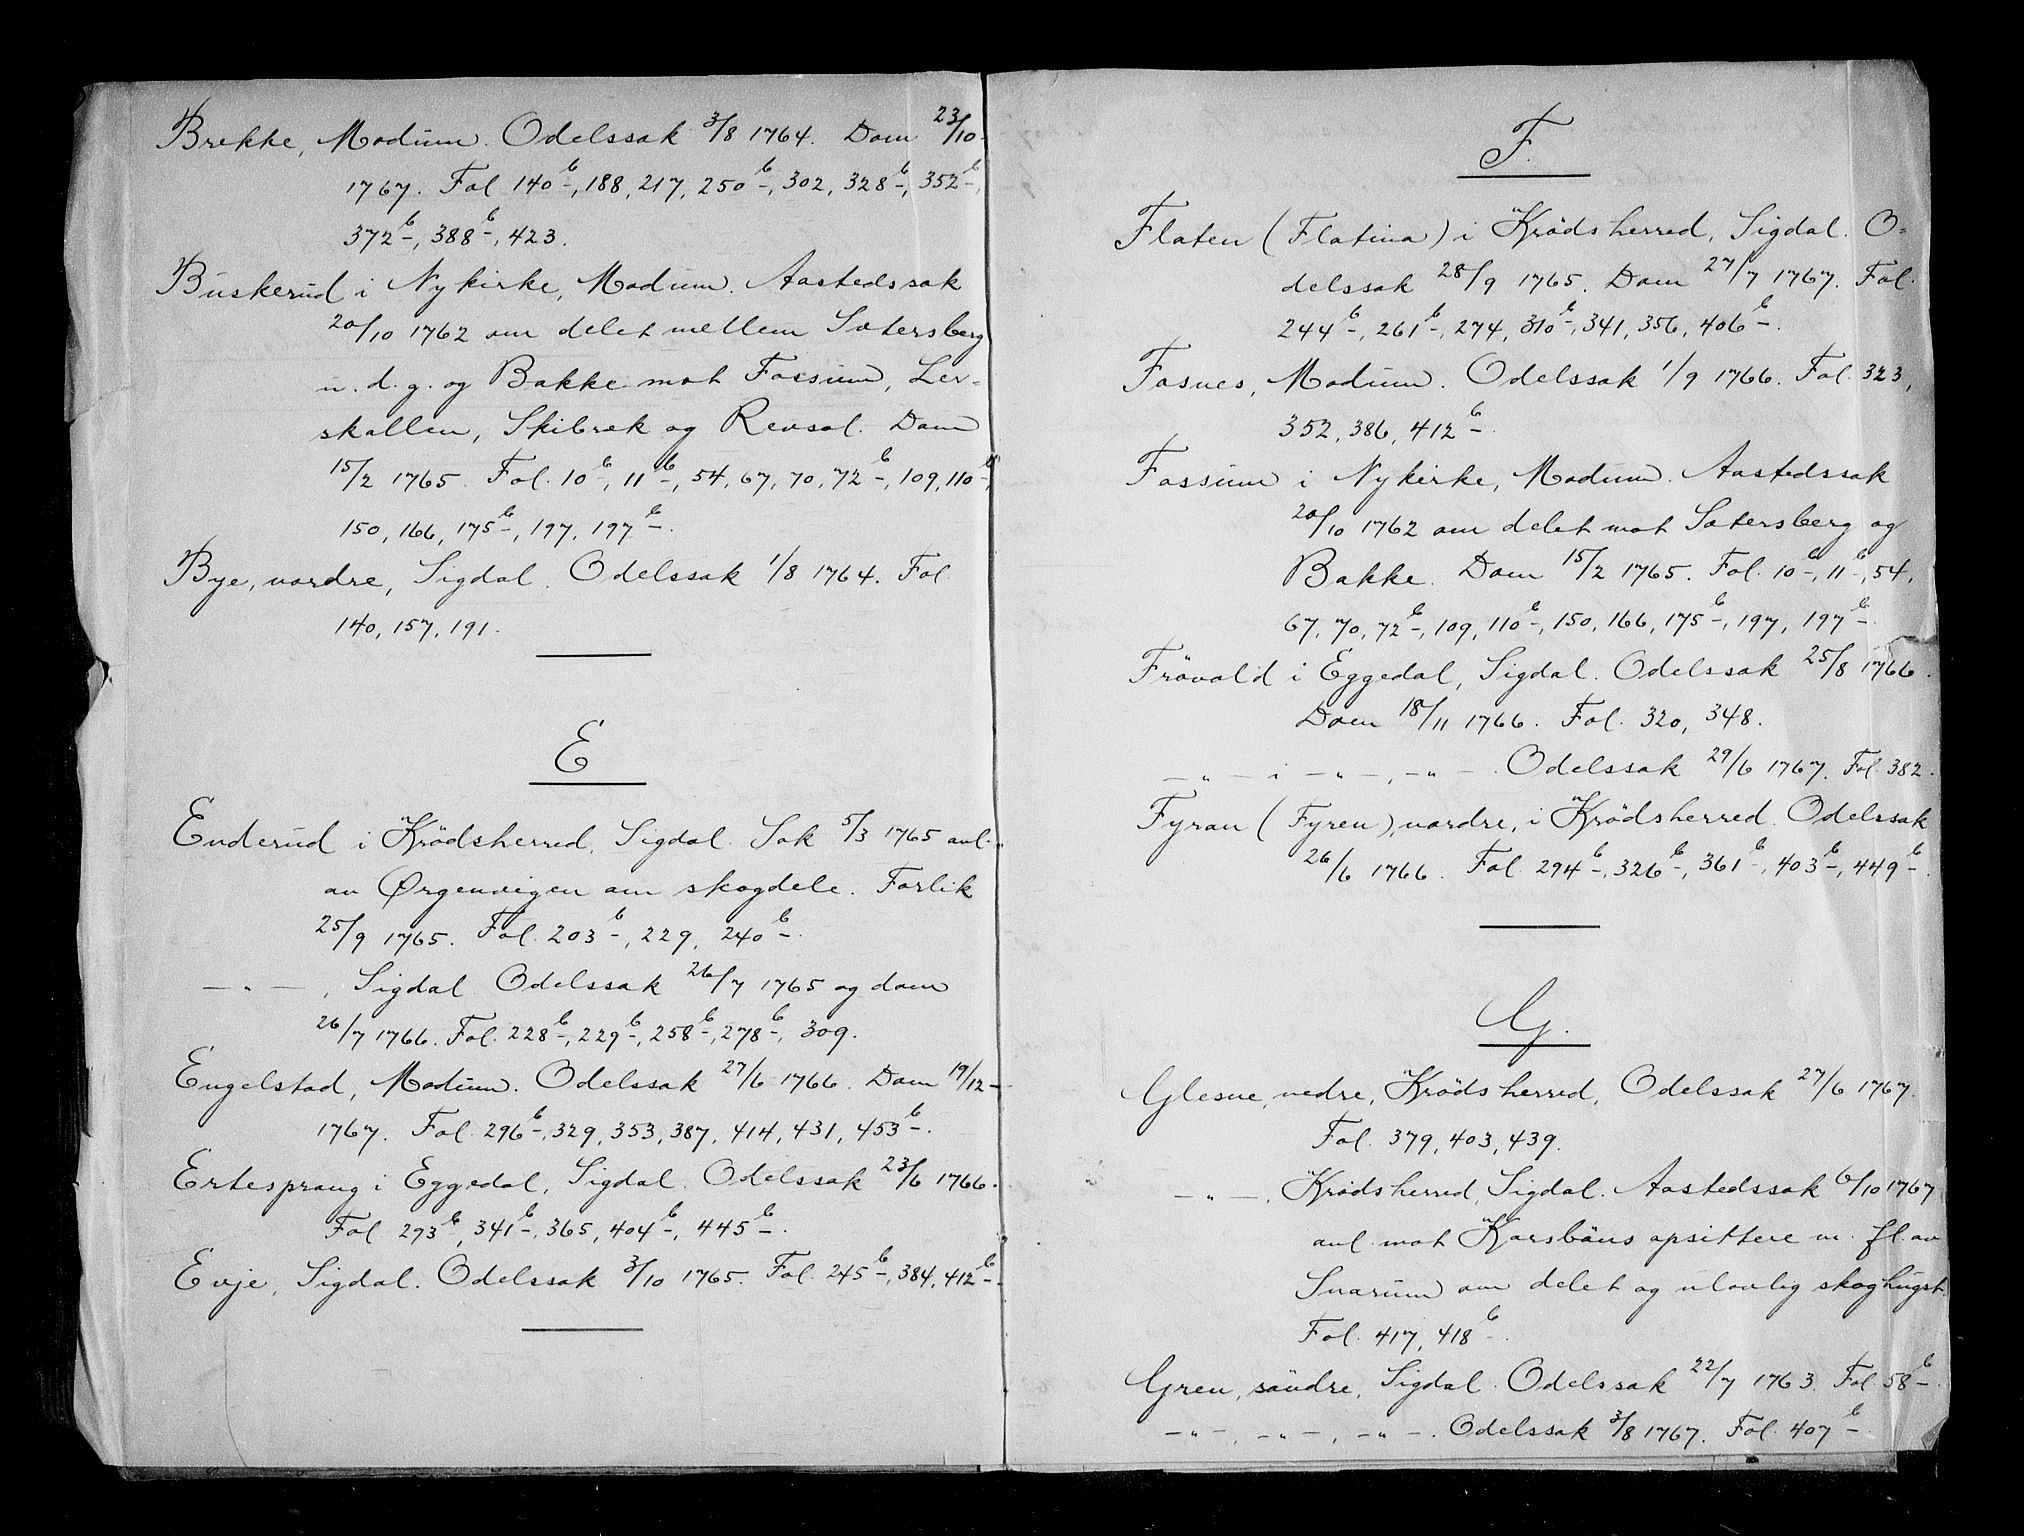 Brekke, Modum. Odelssak 3/8 1764. Dom 23/10-
1767. Fol 140b, 188, 217, 250b, 302, 328b, 352b,
372b, 388b, 423.
Buskerud i Nykirke, Modum. Aastedssak
20/10 1762 om delet mellem Sætersberg
n. d. g. og Bakke mot Fossum, Ler-
skallen, Skibrek og Revsal. Dom
15/2 1765. Fol. 10b, 11b, 54, 67, 70, 72b, 109, 110b,
150, 166, 175b, 197, 197b.
Bye, nordre, Sigdal. Odelssak 1/8 1764. Fol.
140, 157, 191.
E
Enderud i Krödsherred, Sigdal. Sak 5/3 1765 anl.
av Ørgenvigen om skogdele. Forlik
25/9 1765. Fol. 203b, 229, 240b.
-"-, Sigdal. Odelssak 26/7 1765 og dom
26/7 1766. Fol. 228b, 229b, 258b, 278b, 309.
Engelstad, Modum. Odelssak 27/6 1766. Dom 19/12-
1767. Fol. 296b, 329, 353, 387, 414, 431, 453b.
Ertesprang i Eggedal, Sigdal. Odelssak 23/6 1766.
Fol. 293b, 341b, 365, 404b, 445b.
Evje, Sigdal. Odelssak 3/10 1765. Fol. 245b, 384, 412b.
F.
Flaten (Flatina) i Krödsherred, Sigdal. O-
delssak 28/9 1765. Dom 27/7 1767. Fol.
244b, 261b, 274, 310b, 341, 356, 406b.
Fosnes, Modum. Odelssak 1/9 1766. Fol. 323,
352, 386, 412b.
Fossum i Nykirke, Modum. Aastedssak
20/10 1762 om delet mot Sætersberg og
Bakke. Dom 15/2 1765. Fol. 10b, 11b, 54,
67, 70, 72b, 109, 110b, 150, 166, 175b, 197, 197b.
Frövold i Eggedal, Sigdal. Odelssak 25/8 1766.
Dom 18/11 1766. Fol. 320, 348.
-"- i -"-, -"-. Odelssak 29/6 1767. Fol. 382.
Fyran (Fyren), nordre, i Krödsherred. Odelssak
26/6 1766. Fol. 294b, 326b, 361b, 403b, 449b.
G.
Glesne, nedre, Krödsherred, Odelssak 27/6 1767.
Fol. 379, 403, 439.
-"-, Krödsherred, Sigdal. Aastedssak 6/10 1767
anl. mot Korsböns opsittere m. fl. av
Snarum om delet og ulovlig skoghugst.
Fol. 417, 418b.
Gren, söndre, Sigdal. Odelssak 22/7 1763. Fol. 58b.
-"-, -"-, -"-. Odelssak 3/8 1767. Fol. 407b